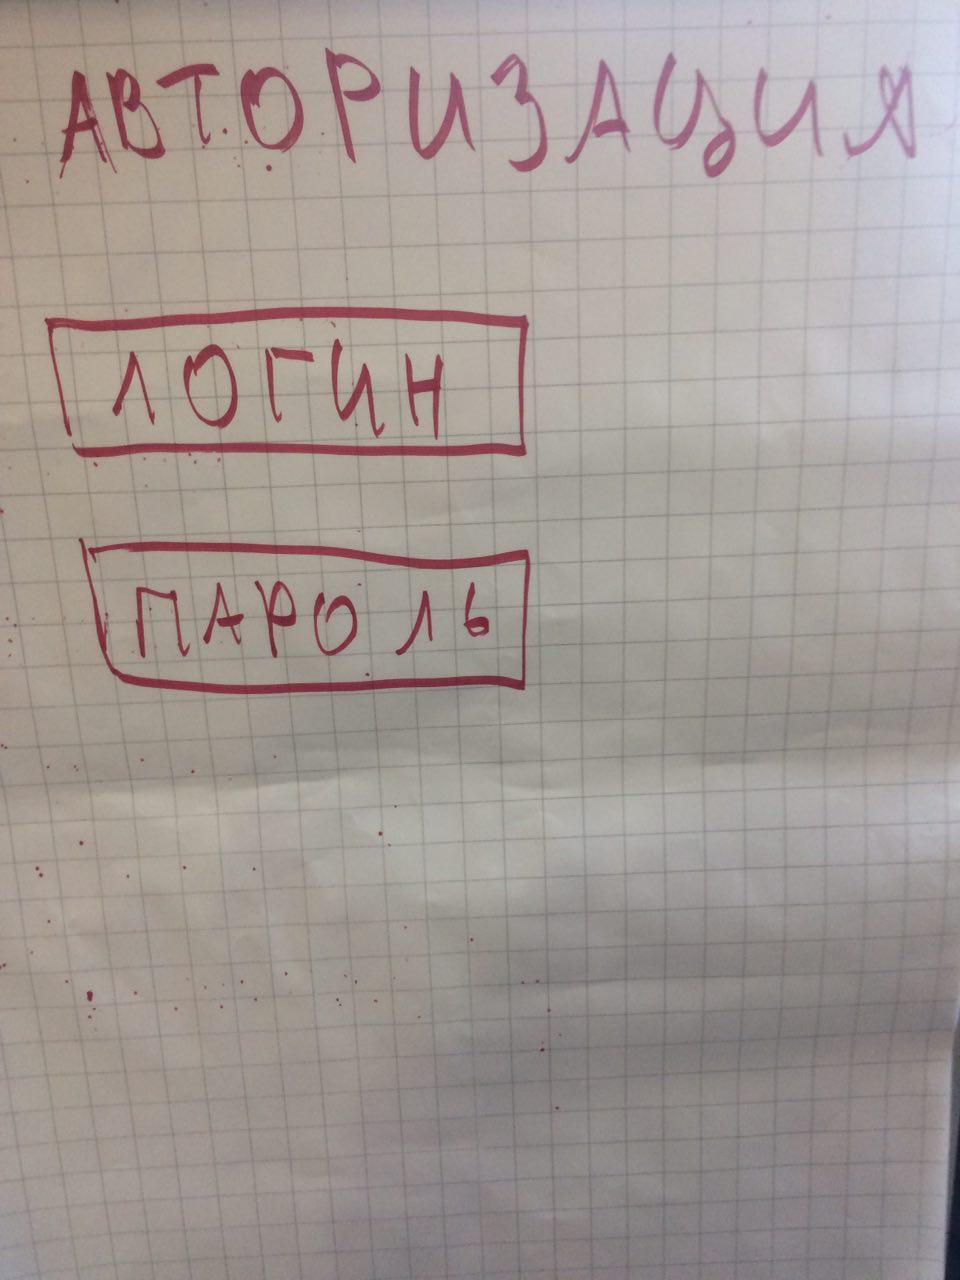 АВТОРИЗАЦИЯ
ЛОГИН
ПАРОЛЬ